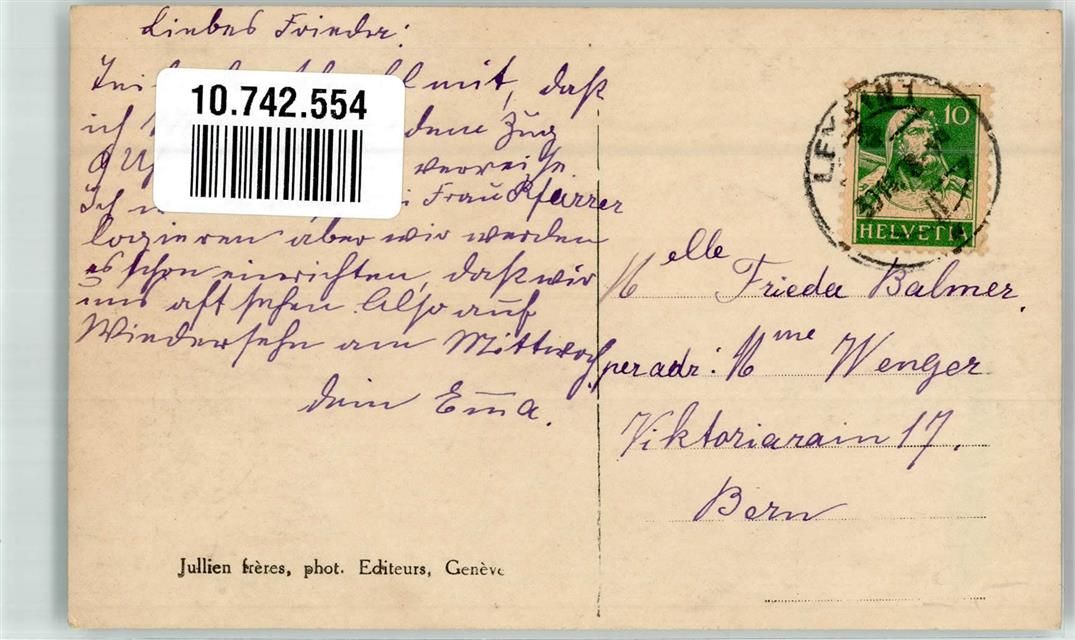 Liebes Frieda:
mit, daß
ich dem Zug
verreise.
Ich Frau Pfarrer
logieren aber wir werden
es schon einrichten, daß wir
uns oft sehen. Also auf
Wiedersehn am Mittwoch.
dein Emma.
10.742.554
10
HELVETIA
Melle Frieda Balmer.
per adr: Mme Wenger
Viktoriarain 17.
Bern
Jullien frères, phot. Editeurs, Genève